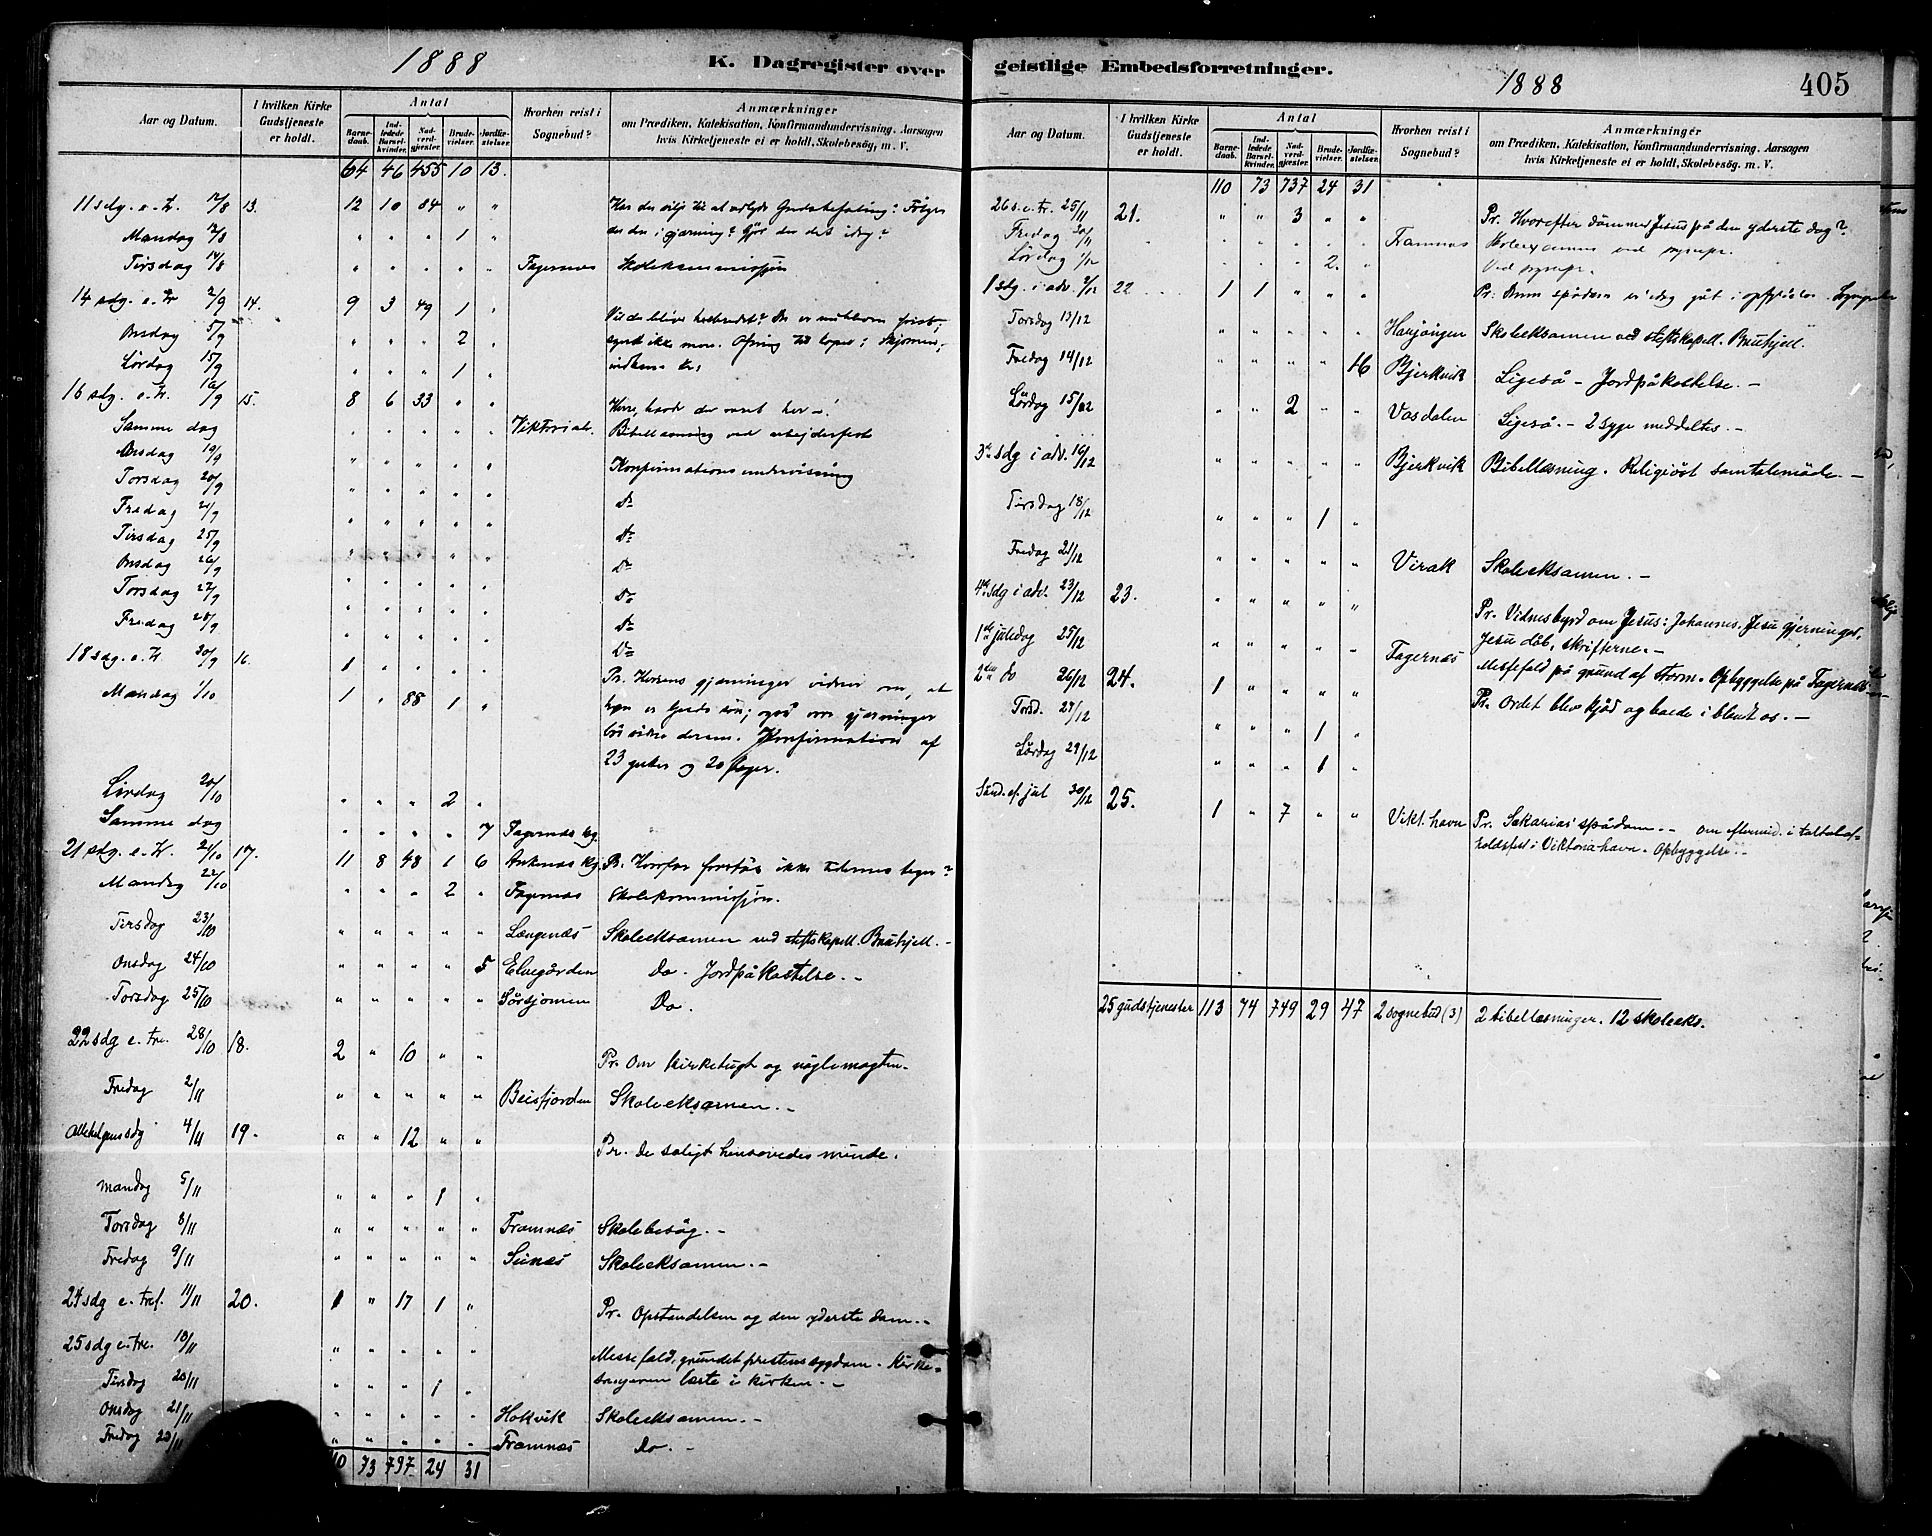 1888
K. Dagregister over
Aar og Datum.
I hvilken Kirke Gudstjeneste er holdt.
Antal
Barnedaab.
Indledede Barselkvinder.
Nadverdgjester.
Brudevielser.
Jordfæstelser.
Hvorhen reist i Sognebud?
Anmærkninger
om Prædiken, Katekisation, Konfirmandundervisning. Aarsagen
hvis Kirketjeneste ei er holdt, Skolebesög, m. V.
64 46 455 10 13.
11 sdg. e. tr. 12/8 13. 12 10 84 " "
Mandag " " " 1 "
Tirsdag 14/8 " " " " " Fagernæs Skolekommissjon
14 sdg. e. tr 2/9 14. 9 3 49 1 "
Onsdag 5/9 " " " 2 "
Lørdag 15/9 " " " 1 "
16 sdg. e. tr. 16/9 15. 8 6 33 " "
Samme dag " " " " " Bibellæsning ved arbejderfest
Onsdag 19/9 " " " " " Konfirmationsundervisning
Torsdag 20/9 " " " " " Do
Fredag 21/9 " " " " " Do
Tirsdag 25/9 " " " " " Do
Onsdag 26/9 " " " " " Do
Torsdag 27/9 " " " " " Do
Fredag 28/9 " " " " " Do
18 sdg. e. tr. 30/9 16. 1 " " " "
Mandag 1/10 1 " 88 1 "
Pr. Herrens gjerninger vidner om, at
han er Guds søn; også vore gjerninger
bør vidne derom. Konfirmation af
23 gutter og 20 piger.
Lørdag 20/10 " " " 2 "
Samme dag " " " " 7 Fagernæs kg.
21 sdg. e. tr. 21/10 17. 11 8 48 1 6 Ankenæs kg. Pr. Hvorfor forstås ikke tidernes tegn?
Mandag 22/10 " " " 2 " Fagernæs Skolekommissjon.
Tirsdag 23/10 " " " " " Længenæs Skoleeksamen ved stiftskapell. Bruhjell. -
Onsdag 24/10 " " " " 5 Elvegården Do. Jordpåkastelse. -
Torsdag 25/10 " " " " " Sørsjomen Do.
22 sdg e. tre. 28/10 18. 2 " 10 " " Pr. Om kirketugt og nøglemagten.
Fredag 2/11 " " " " " Beisfjorden Skoleeksamen. -
Allehelgensdg 4/11 19. " " 12 " " Pr. De saligt hensovedes minde.
Mandag 5/11 " " " 1 "
Torsdag 8/11 " " " " " Framnæs Skolebesøg. -
Fredag 9/11 " " " " " Seinæs Skoleeksamen. -
24 sdg e. tref. 11/11 20. 1 " 17 1 " Pr. Opstandelsen og den yderste dom. -
25 sdg e. tre. 18/11 " " " " " Messefald, grundet prestens sygdom. Kirke-
sangeren læste i kirken. -
Tirsdag 20/11 " " " 1 "
Onsdag 21/11 " " " " " Hokvik Skoleeksamen. -
Fredag 23/11 " " " " " Framnæs Do. -
110 73 737 24 31
geistlige Embedsforretninger.
1888
405
Aar og Datum.
I hvilken Kirke Gudstjeneste er holdt.
Antal
Barnedaab.
Indledede Barselkvinder.
Nadverdgjester.
Brudevielser.
Jordfæstelser.
Hvorhen reist i Sognebud?
Anmærkninger
om Prædiken, Katekisation, Konfirmandundervisning. Aarsagen
hvis Kirketjeneste ei er holdt, Skolebesög. m. V.
110 73 737 24 31
26 s. e. tr. 25/11 21. " " 3 " " Pr. Hvorefter dömmer Jesus på den yderste dag?
Fredag 30/11 " " " " " Framnæs Skoleexamen ved
Lördag 1/12 " " " 2. "
1 sdg. i adv. 2/12 22 1 1 " " "
Torsdag 13/12 " " " " " Herjangen Skoleeksamen ved stiftskapell. Bruhjell.
Fredag 14/12 " " " " 16 Bjerkvik Ligeså - Jordpåkastelse. -
Lördag 15/12 " " 2 " " Vasdalen Ligeså. - 2 syge meddeltes. -
3de sdg i adv. 16/12 " " " " " Bjerkvik Bibellæsning. Religiöst samtalemöde. -
Tirsdag 18/12 " " " 1 "
Fredag 21/12 " " " " " Virak Skoleeksamen. -
4de sdg i adv. 23/12 23. " " " " " Pr. Vidnesbyrd om Jesus: Johannes, Jesu gjerninger,
Jesu dåb, skrifterne. -
1ste juledag 25/12 " " " " " Fagernæs Messefald på grund af storm. Opbyggelse på Fagernæs
2den do 26/12 24. 1 " " " " Pr. Ordet blev kjöd og boede iblandt os. -
Torsd. 27/12 " " " 1 "
Lördag 29/12 " " " 1 "
Sönd. ef. jul 30/12 25. 1 " 7 " " Vikt. havn Pr. Sakarias' spådom. - om eftermid. i
Viktoriahavn. Opbyggelse. -
25 gudstjenester 113 74 749 29 47 2 sognebud (3) 2 bibellæsninger. 12 skoleeks.